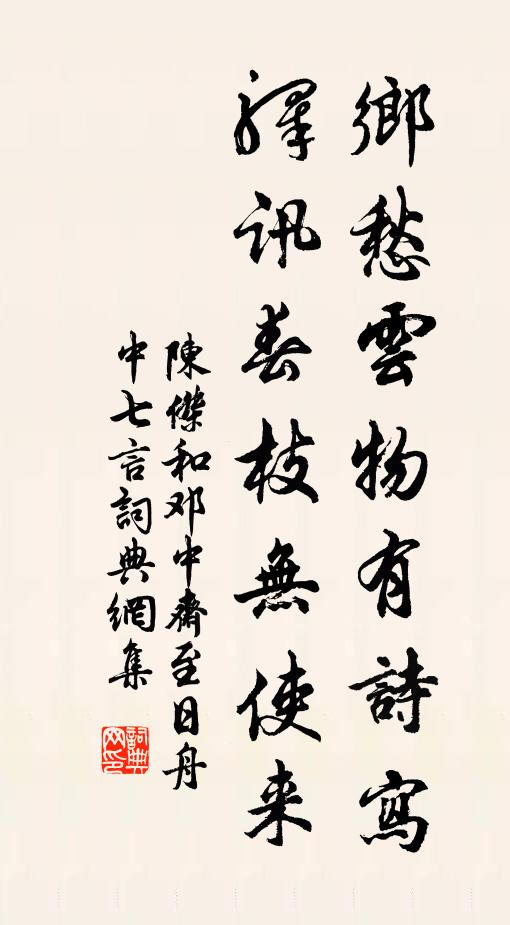 鄉愁雲物有詩寫
驛訊春枝無使来
陳傑和邓中齋至日舟
中七言詞典網集
詞典网印